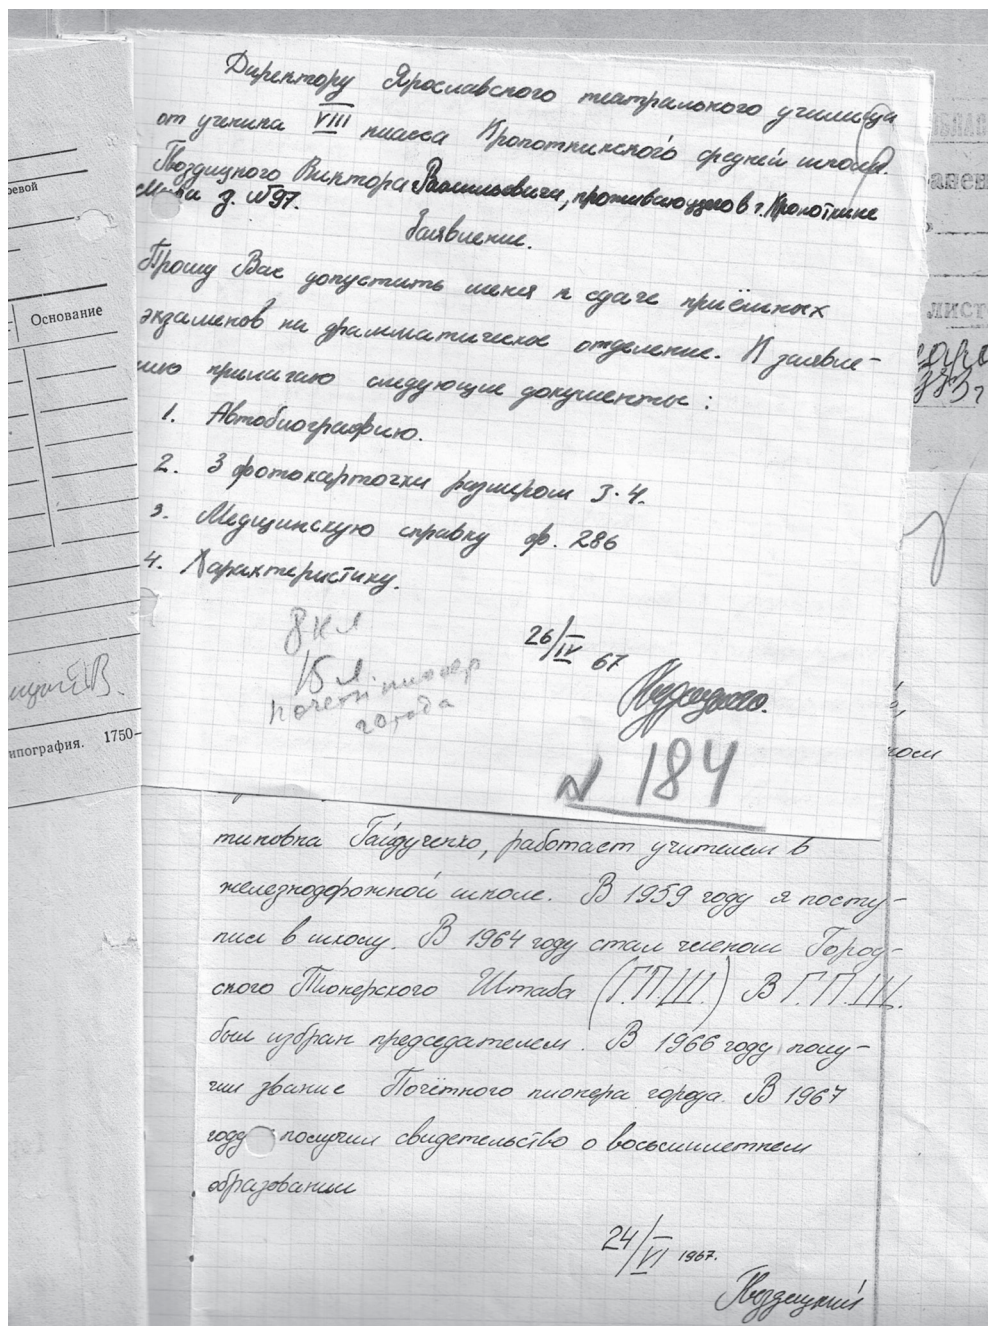 Директору Ярославского театрального училища
от ученика VIII класса Кропоткинского средней школы.
Гвоздицкого Виктора Васильевича, проживающего в г. Кропоткине
д. №97.
Заявление.
Прошу Вас допустить меня к сдаче приёмных
экзаменов на драмматическое отделение. К заявле-
нию прилагаю следующие документы:
1. Автобиографию.
2. 3 фотокарточки размером 3·4.
3. Медицинскую справку ф. 286
4. Характеристику.
8 кл
15 л
почетн. пионер
города
26/IV 67
№ 184
Основание
ипография. 1750-
лист
тиновна Гайдученко, работает учителем в
железнодорожной школе. В 1959 году я посту-
пил в школу. В 1964 году стал членом Город-
ского Пионерского Штаба (Г.П.Ш.) В Г.П.Ш.
был избран председателем. В 1966 году полу-
чил звание Почётного пионера города. В 1967
году получил свидетельство о восьмилетнем
образовании
24/VI 1967.
Гвоздицкий